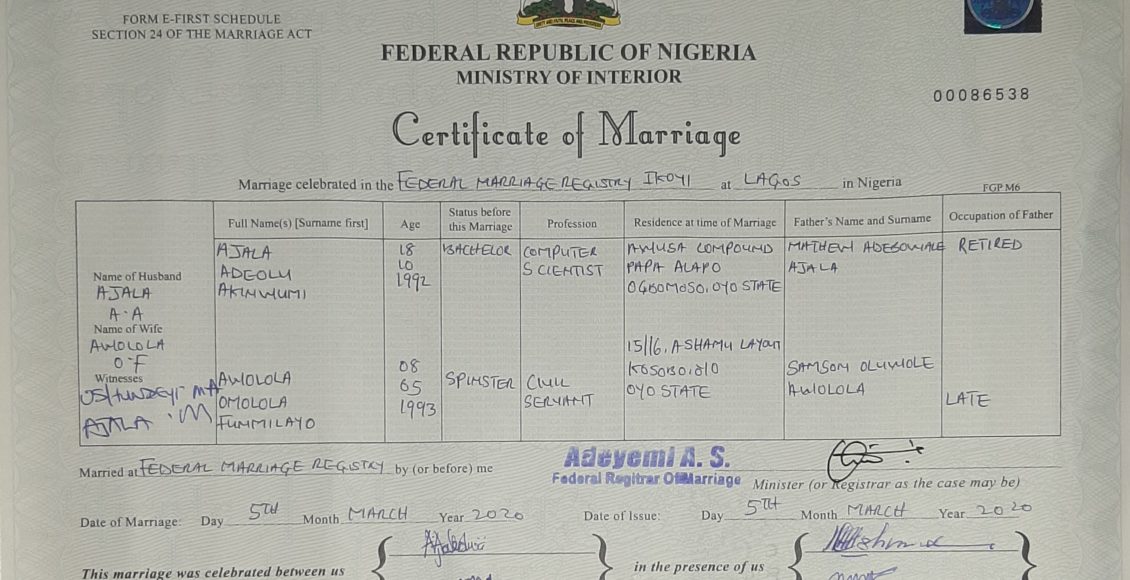 FORM E-FIRST SCHEDULE
SECTION 24 OF THE MARRIAGE ACT
UNITY AND FAITH, PEACE AND PROGRESS
FEDERAL REPUBLIC OF NIGERIA
MINISTRY OF INTERIOR
00086538
Certificate of Marriage
Marriage celebrated in the FEDERAL MARRIAGE REGISTRY IKOYI at LAGOS in Nigeria
FGP M6
Full Name(s) [Surname first] Age Status before this Marriage Profession Residence at time of Marriage Father's Name and Surname Occupation of Father
AJALA 18 BACHELOR COMPUTER AWUSA COMPOUND MATHEW ADEBOWALE RETIRED
Name of Husband ADEOLU 10 SCIENTIST PAPA ALAPO AJALA
AJALA AKINWUMI 1992 OGBOMOSO, OYO STATE
A.A
Name of Wife
AWOLOLA 15/16, ASHAMU LAYOUT
O.F 08 SAMSON OLUWOLE
Witnesses AWOLOLA 05 SPINSTER CIVIL OYO STATE AWOLOLA
OMOLOLA 1993 SERVANT LATE
AJALA .M FUMMILAYO
Married at FEDERAL MARRIAGE REGISTRY by (or before) me Adeyemi A. S.
Federal Regitrar Of Marriage Minister (or Registrar as the case may be)
Date of Marriage: Day 5TH Month MARCH Year 2020 Date of Issue: Day 5TH Month MARCH Year 2020
This marriage was celebrated between us in the presence of us